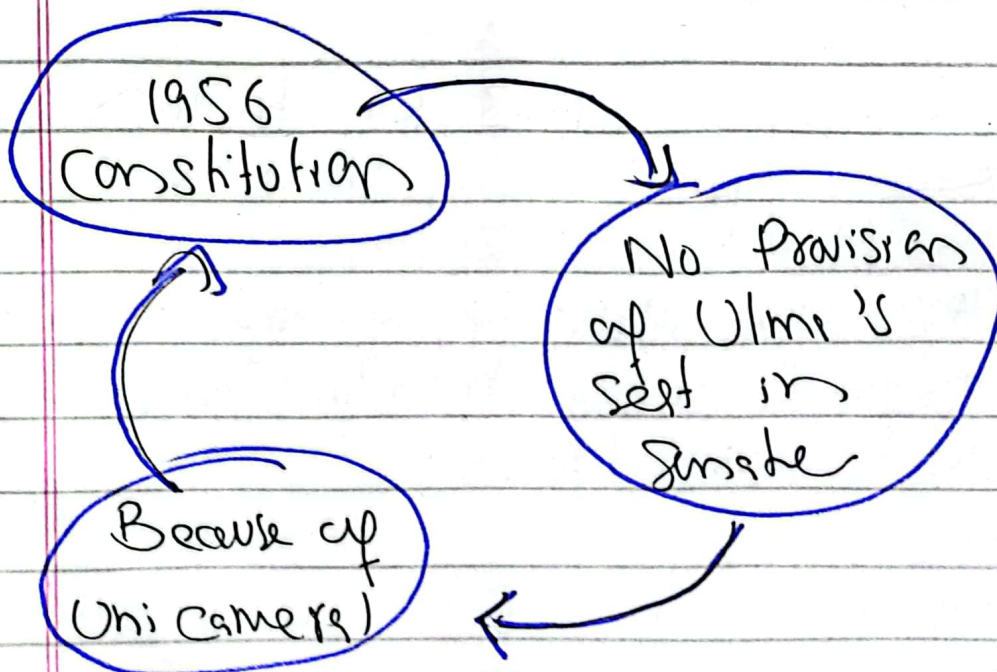 1956
Constitution
No Provision
of Ulma's
seat in
Senate
Because of
Unicameral